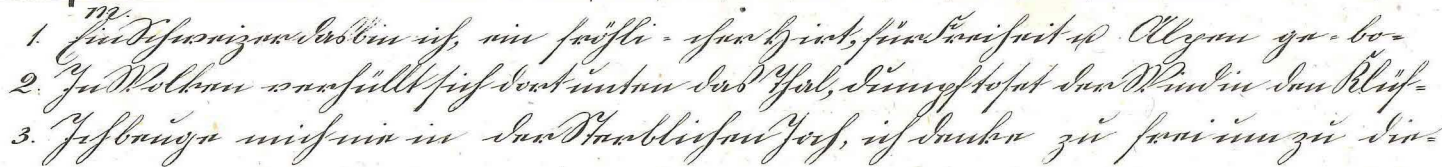 m.
1. Ein Schweizer das bin ich, ein fröhli - cher Hirt, für Freiheit u Alpen ge - bo-
2. In Wolken verhüllt sich dort unten das Thal, dumpf toset der Wind in den Klüf-
3. Ich beuge mich nie in der Sterblichen Joch, ich denke zu frei um zu die-